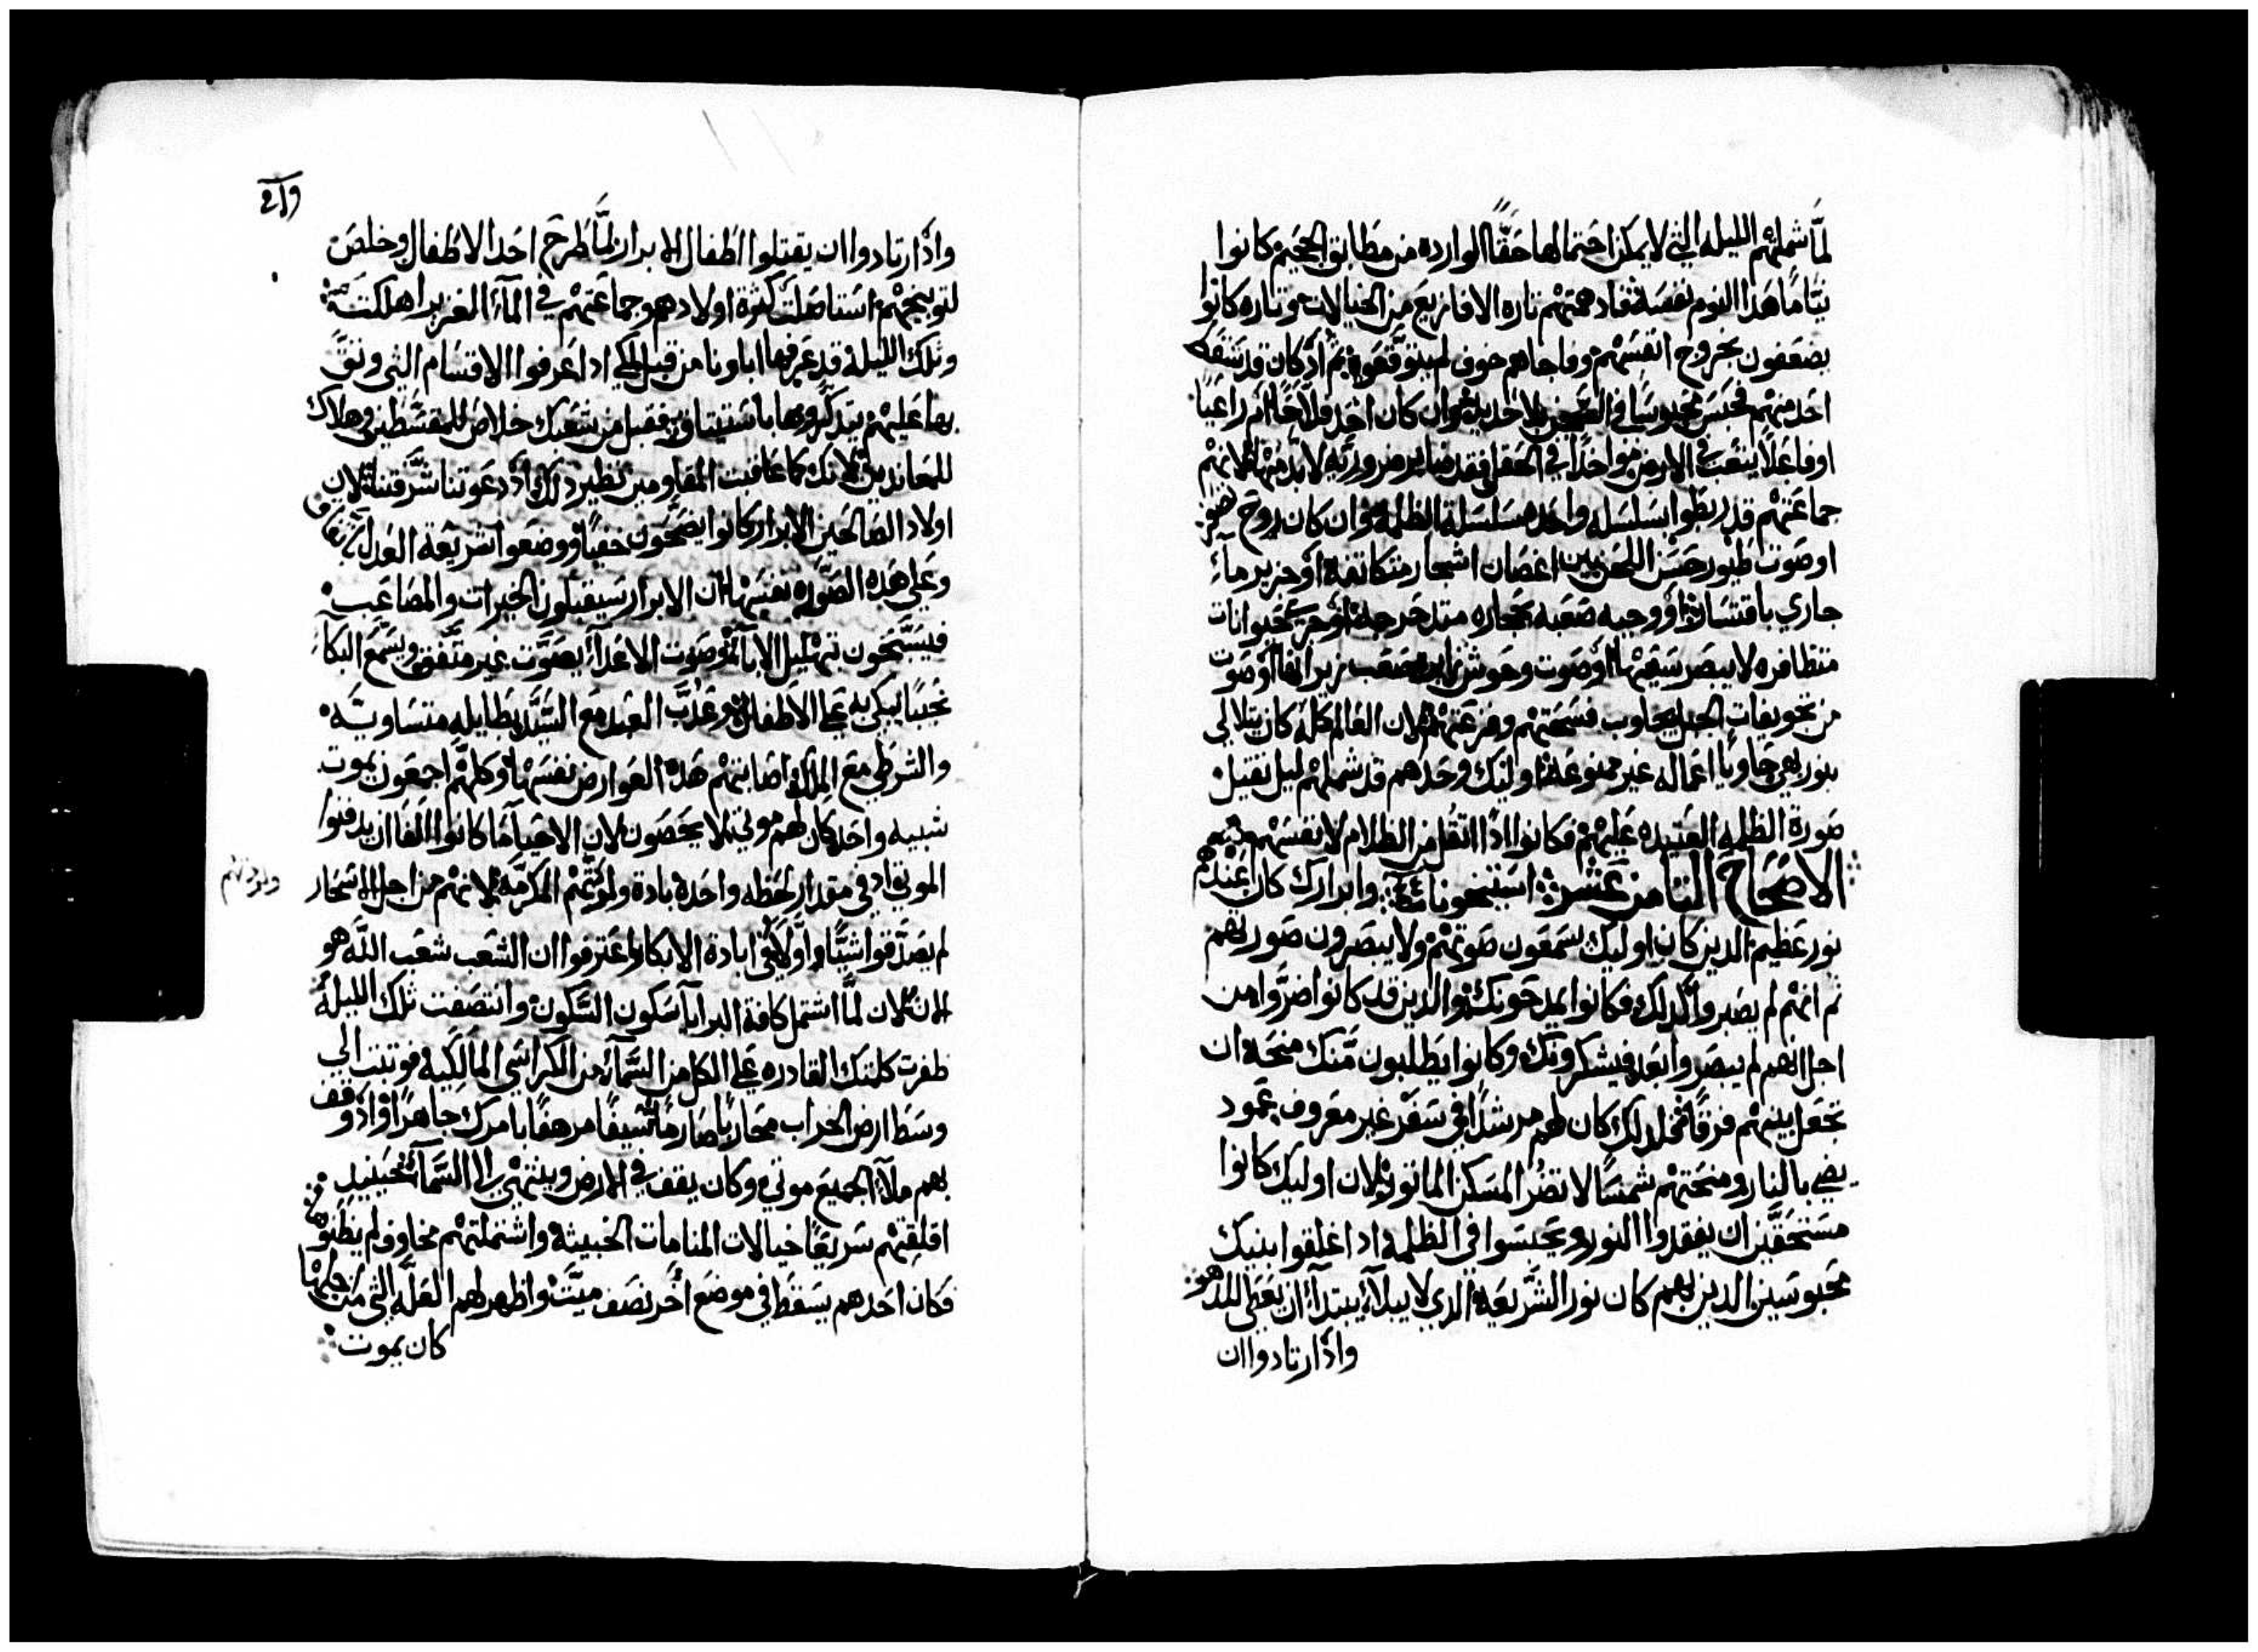 لمَّا شملتهم الليله التي لا يمكن احتمالها حقًّا الوارده من مطابق الجحيم كانوا
نيامًا هذا النوم نفسه فقادهمتهم تاره الافازيع من الخيالات وتاره كانوا
يضعفون بخروج انفسهم وفاجاهم خوف لم يتوقعوه ثم اذ كان قد
احد منهم فحبس محبوسًا في السجن بلا حديد وان كان احد فلاحًا ام راعيًا
او فاعلًا يتعب في الارض مواخدًا في الحقل فقد صابر ضروريه لا بد منها لانهم
جماعتهم قد ربطوا بسلسله واحده سلسلة الظلمه وان كان روح
او صوت طيور حسن اللحن بين اغصان اشجار متكاثفه او خرير مآء
جاري باقتسار او وجبه صعبه بحجاره متدحرجه او جري حيوانات
متظافره لا يبصر سعيها او صوت وحوش صعب زيرانها او صوت
من تجويفات الجبل يجاوب فسحقتهم وفزعتهم لان العالم كله كان يتلالي
بنور بهي حاويًا اعماله غير ممنوعه اوليك وحدهم قد شملهم ليل ثقيل
صورة الظلمه العتيده عليهم فكانوا اذًا اثقل من الظلام لانفسهم
الاصحاح الثامن عشر وابرارك كان عندهم
نور عظيم الدين كان اوليك يسمعون صوتهم ولا يبصرون صورتهم
ثم انهم لم يصبروا كذلك فكانوا يمدحونك والدين قد كانوا اضرُّوا من
اجل انهم لم يبصروا بعد فيشكرونك وكانوا يطلبون منك منحه ان
تجعل بينهم فرقًا فمحل دلك كان لهم مرشدًا في سفر غير معروف عمود
يضي بالنار ومنحتهم شمسًا لا تضُر المسكن الماثور لان اوليك كانوا
مستحقين ان يفقدوا النور ويحبسوا في الظلمه اد اغلقوا بنيك
محبوسين الدين بهم كان نور الشريعه الدي لا يبلا يبتدا ان يعطي للدهر
واذ ارتادوا ان
واذ ارتادوا ان يقتلوا اطفال الابرار لمَّا طرح احد الاطفال وخلص
لتوبيخهم استاصلت كثرة اولادهم وجماعتهم في المآء الغزير اهلكت
وتلك الليله قد عرفها اباونا من قبل لكي ادا عرفوا الاقسام التي وثقَّ
بها عليهم يتدكروها فقبل من شعبك خلاص للمقسطين وهلاك
للمعاندين لانك كما عاقبت المقاومين نظير دلك اذ دعوتنا شرفتنا لان
اولاد الصالحين الابرار كانوا يضحون خفيًا ووضعوا شريعة العدل باتفاق
وعلي هده الصوره نفسها ان الابرار سيقبلون الخيرات والمصاعب
فيسبَّحون تهليل الابآء وصوت الاعدآء يصوَّت غير متَّفق ويسمع البكآء
نحيبًا يبكي به علي الاطفال وعدَّب العبد مع السيَّد بطايله متساويَّه
والشرطي مع الملك اصابتهم هده العوارض نفسها وكلهم اجمعون بموت
شبيه واحد كان لهم موتي لا يحصون لان الاحيآء ما كانوا اكفا ان يدفنوا
الموتي اد في مقدار لحظه واحده باده ولادتهم المكرَّمه لانهم من اجل الاسحار
لم يصدَّقوا شيًّا واوَّلًا في ابادة الابكار اعترفوا ان الشعب شعب اللَّه هو
الان لان لمَّا اشتمل كافة البرايا سكون السَّكون وانتصفت تلك الليله
طفرت كلمتك القادره علي الكل من السَّمآء من الكراسي المالكيه فوثبت الي
وسط ارض الخراب محاربًا صارمًا سيفًا مرهفًا بامرك جاهرًا فاذ وقف
بهم ملآء الجميع موتي وكان يقف في الارض وينتهي الي السَّمآء فحينيد
اقلقتهم سريعًا خيالات المنامات الخبيثه واشتملتهم مخاوف لم يظنوها
فكان احدهم يسقط في موضع اخر نصف ميّت واظهر لهم العلَّه التي من اجلها
كان يموت